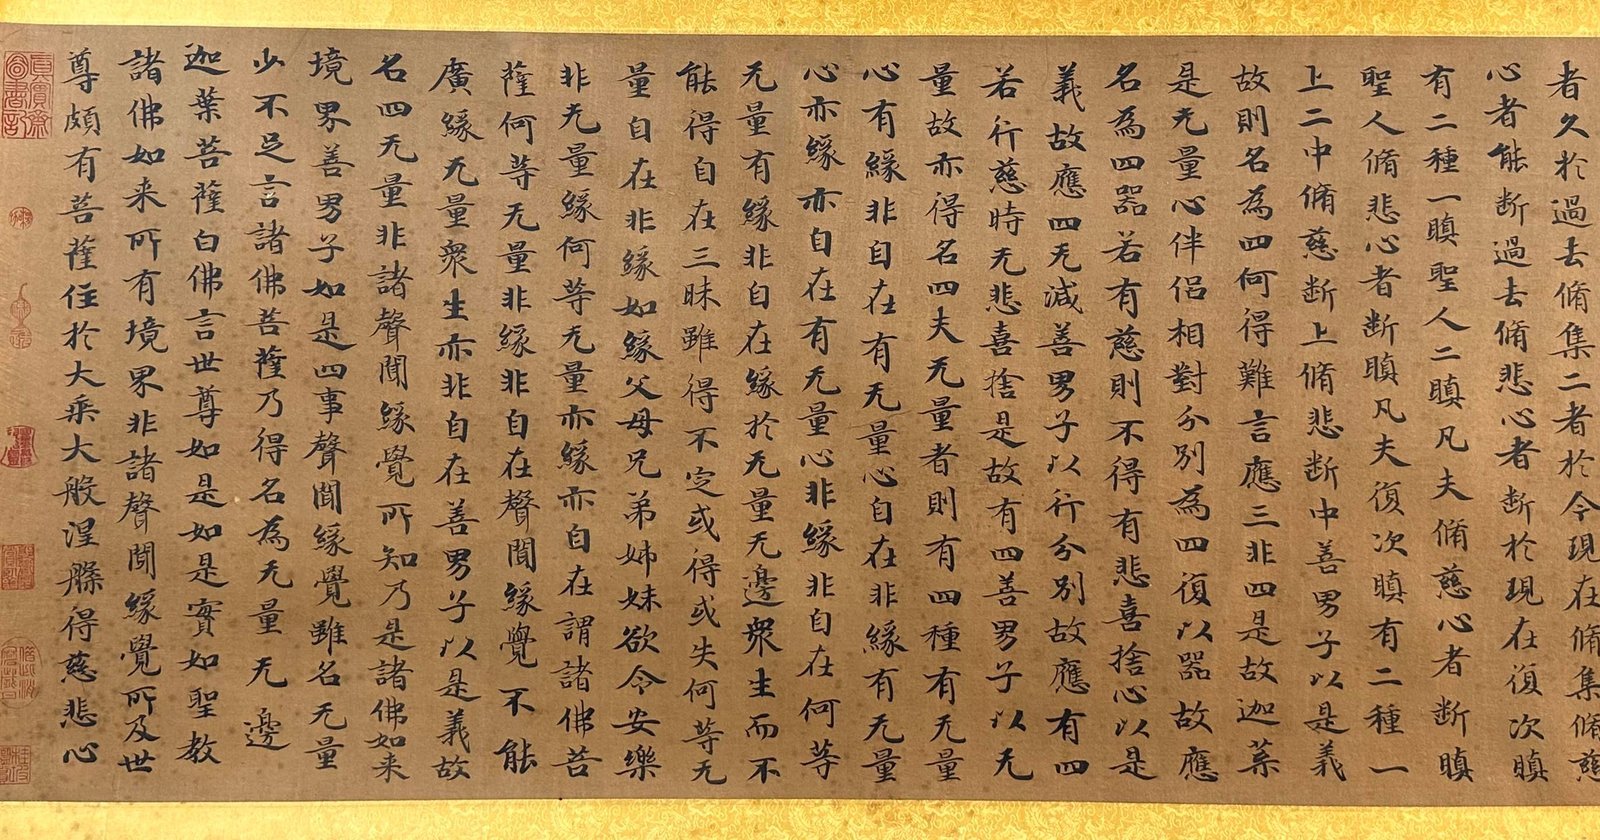 者久於過去脩集二者於今現在脩集脩慈
心者能断過去脩悲心者断於現在復次瞋
有二種一瞋聖人二瞋凡夫脩慈心者断瞋
聖人脩悲心者断瞋凡夫復次瞋有二種一
上二中脩慈断上脩悲断中善男子以是義
故則名為四何得難言應三非四是故迦葉
是无量心伴侣相對分別為四復以器故應
名為四器若有慈則不得有悲喜捨心以是
義故應四无減善男子以行分別故應有四
若行慈時无悲喜捨是故有四善男子以无
量故亦得名四夫无量者則有四種有无量
心有緣非自在有无量心自在非緣有无量
心亦緣亦自在有无量心非緣非自在何等
无量有緣非自在緣於无量无邊衆生而不
能得自在三昧雖得不定或得或失何等无
量自在非緣如緣父母兄弟姊妹欲令安樂
非无量緣何等无量亦緣亦自在謂諸佛菩
薩何等无量非緣非自在聲聞緣覺不能
廣緣无量衆生亦非自在善男子以是義故
名四无量非諸聲聞緣覺所知乃是諸佛如来
境界善男子如是四事聲聞緣覺雖名无量
少不足言諸佛菩薩乃得名為无量无邊
迦葉菩薩白佛言世尊如是如是實如聖教
諸佛如来所有境界非諸聲聞緣覺所及世
尊頗有菩薩住於大乘大般涅槃得慈悲心